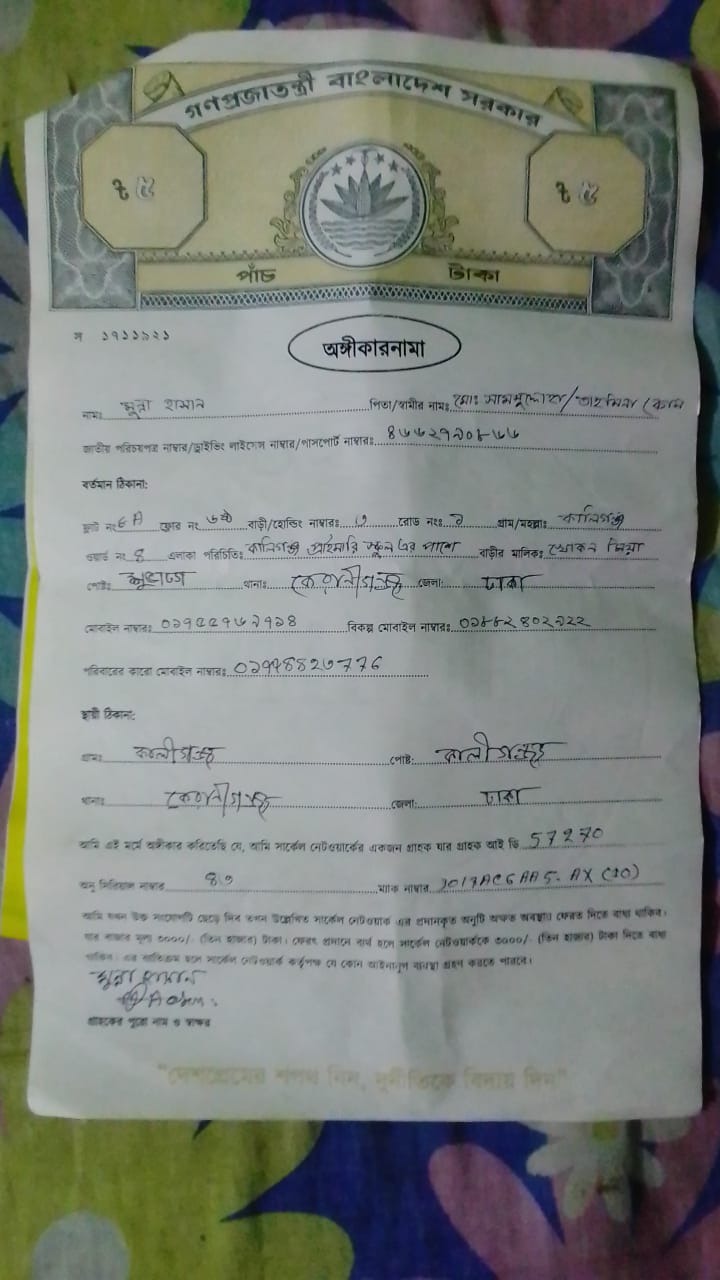 গণপ্রজাতন্ত্রী বাংলাদেশ সরকার
৳ ৫ ৳ ৫
পাঁচ টাকা
স ১৭১১৯২১
অঙ্গীকারনামা
নামঃ মুন্না হাসান পিতা/স্বামীর নামঃ মোঃ
জাতীয় পরিচয়পত্র নাম্বার/ড্রাইভিং লাইসেন্স নাম্বার/পাসপোর্ট নাম্বারঃ
বর্তমান ঠিকানা:
ফ্লাট নং ৬A ফ্লোর নং ৬ষ্ঠ বাড়ী/হোল্ডিং নাম্বারঃ ৩ রোড নংঃ ১ গ্রাম/মহল্লাঃ কালিগঞ্জ
ওয়ার্ড নং ৪ এলাকা পরিচিতিঃ কালিগঞ্জ প্রাইমারি স্কুল এর পাশে বাড়ীর মালিকঃ খোকন মিয়া
পোষ্টঃ শুভাঢ্যা থানাঃ কেরানীগঞ্জ জেলা: ঢাকা
মোবাইল নাম্বারঃ বিকল্প মোবাইল নাম্বারঃ
পরিবারের কারো মোবাইল নাম্বারঃ
স্থায়ী ঠিকানা:
গ্রামঃ কালীগঞ্জ পোষ্ট: কালীগঞ্জ
থানাঃ কেরানীগঞ্জ জেলা: ঢাকা
আমি এই মর্মে অঙ্গীকার করিতেছি যে, আমি সার্কেল নেটওয়ার্কের একজন গ্রাহক যার গ্রাহক আই ডি 57270
অনু সিরিয়াল নাম্বার ৪৩ ম্যাক নাম্বার
আমি যখন উক্ত সংযোগটি ছেড়ে দিব তখন উল্লেখিত সার্কেল নেটওয়ার্ক এর প্রদানকৃত অনুটি অক্ষত অবস্থায় ফেরত দিতে বাধ্য থাকিব।
যার বাজার মূল্য ৩০০০/- (তিন হাজার) টাকা। ফেরৎ প্রদানে ব্যর্থ হলে সার্কেল নেটওয়ার্ককে ৩০০০/- (তিন হাজার) টাকা দিতে বাধ্য
থাকিব। এর ব্যতিক্রম হলে সার্কেল নেটওয়ার্ক কর্তৃপক্ষ যে কোন আইনানুগ ব্যবস্থা গ্রহণ করতে পারবে।
মুন্না হাসান
গ্রাহকের পুরো নাম ও স্বাক্ষর
"দেশপ্রেমের শপথ নিন, দুর্নীতিকে বিদায় দিন"